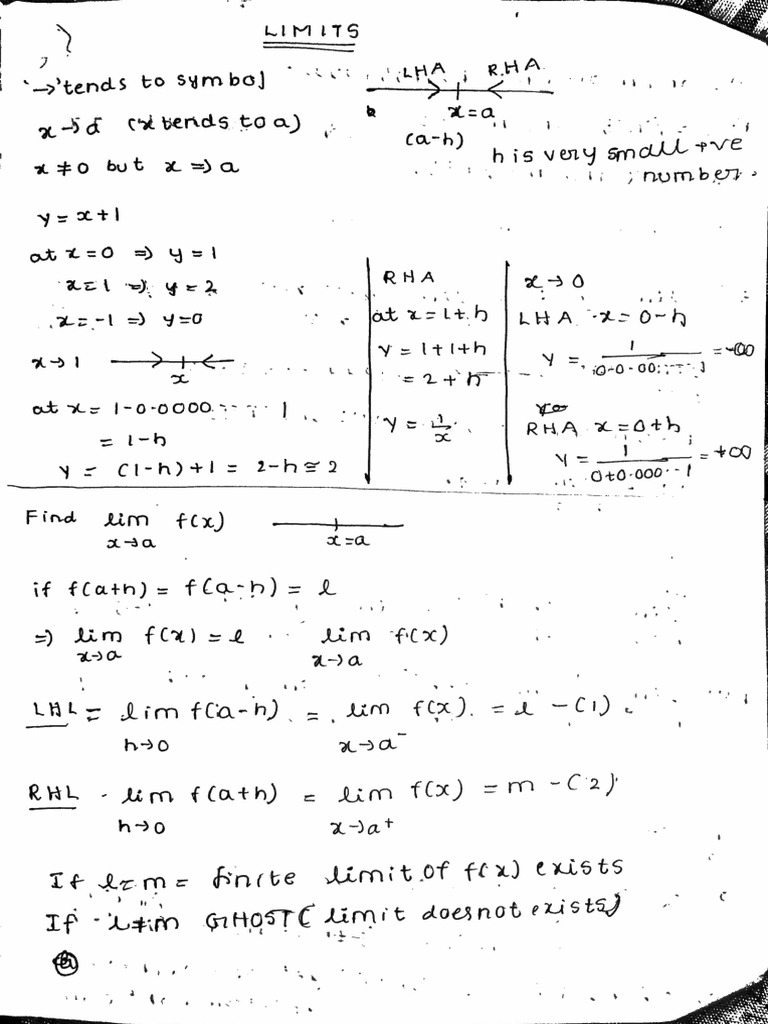 LIMITS
'→' tends to symbol
LHA RHA
x→a (x tends to a)
x=a
(a-h)
h is very small +ve number.
x≠0 but x⇒a
y=x+1
at x=0 ⇒ y=1
x=1 ⇒ y=2
x=-1 ⇒ y=0
x→1
x
at x= 1-0.0000......1
= 1-h
y = (1-h)+1 = 2-h≅2
RHA
at x=1+h
y=1+1+h
= 2+h
y = 1/x
x→0
LHA x=0-h
y = 1/(0-0.00......1) = -∞
RHA x=0+h
y = 1/(0+0.000..1) = +∞
Find lim x→a f(x)
x=a
if f(a+h) = f(a-h) = l
⇒ lim x→a f(x) = l lim x→a f(x)
LHL = lim h→0 f(a-h) = lim x→a⁻ f(x) = l -(1)
RHL - lim h→0 f(a+h) = lim x→a+ f(x) = m -(2)
If l=m= finite limit of f(x) exists
If l≠m GHOST( limit doesnot exists)